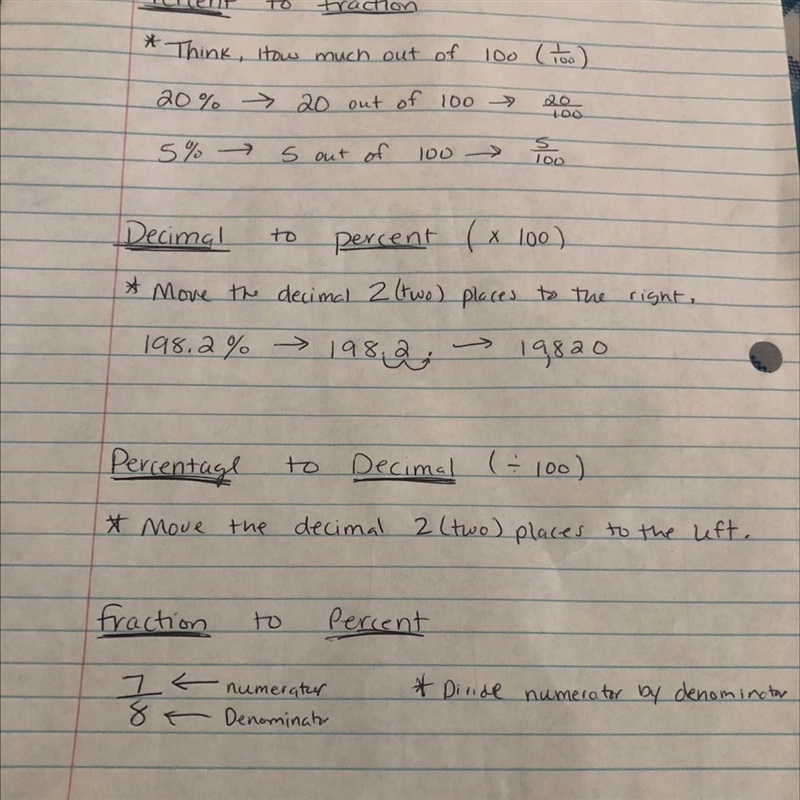 Percent to fraction
* Think, How much out of 100 (1/100)
20% → 20 out of 100 → 20/100
5% → 5 out of 100 → 5/100
Decimal to percent (× 100)
* Move the decimal 2 (two) places to the right.
198.2% → 198.2 . → 19,820
Percentage to Decimal (÷ 100)
* Move the decimal 2 (two) places to the left.
fraction to Percent
7 ← numerator * Divide numerator by denominator
8 ← Denominator